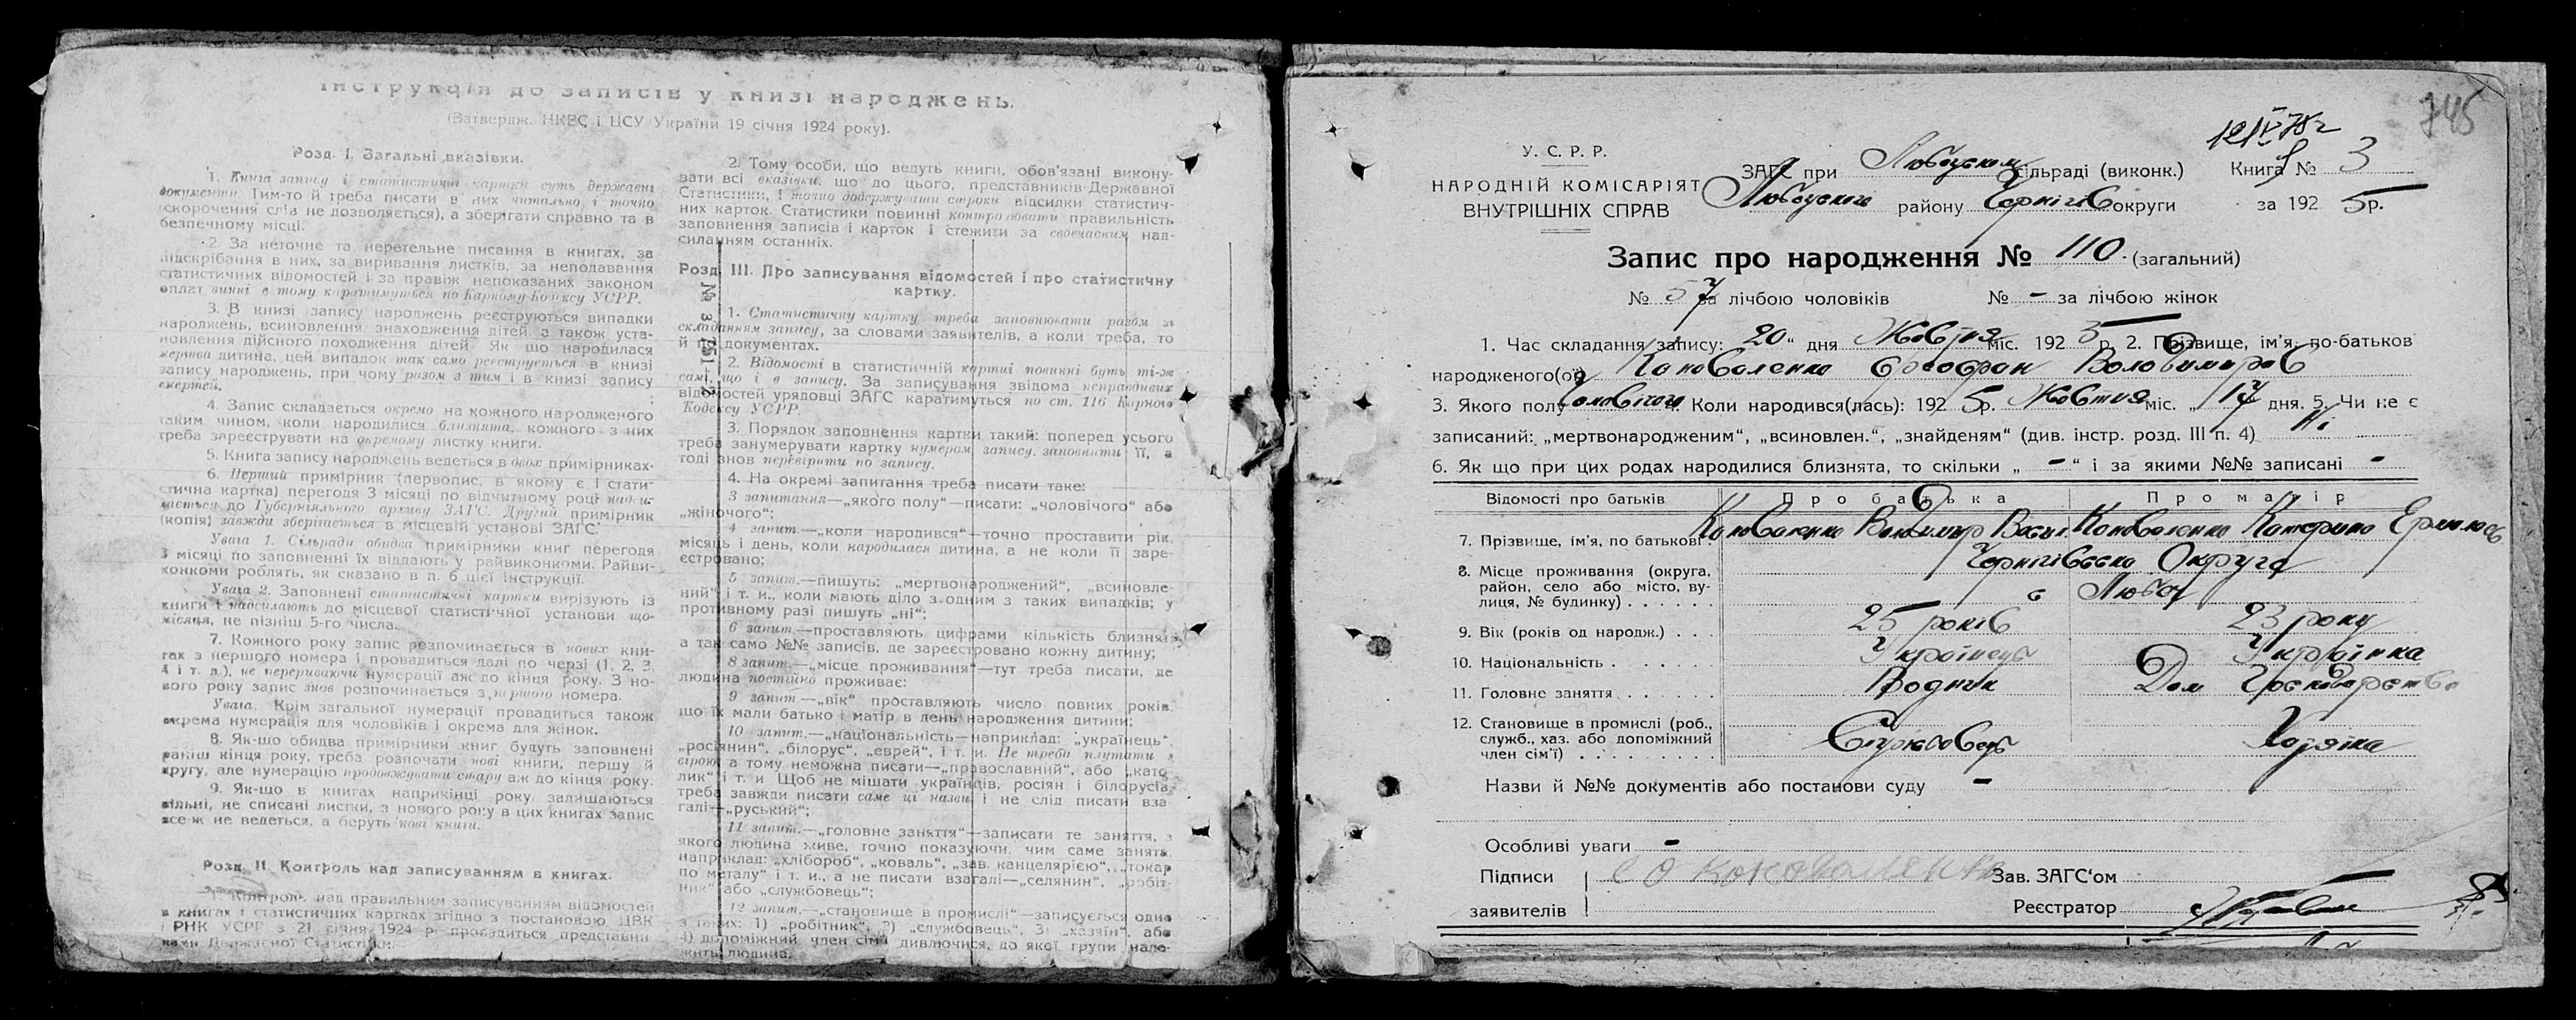 Інструкція до записів у книзі народжень.
(Затвердж. НКВС і ЦСУ України 19 січня 1924 року).
Розд. І. Загальні вказівки.
1. Книга запису і статистичні картки суть державні
документи. Тим-то й треба писати в них читально і точно
(скорочення слів не дозволяється), а зберігати справно та в
безпечному місці.
2. За неточне та неретельне писання в книгах, за
підскрібання в них, за виривання листків, за неподавання
статистичних відомостей і за правіж непоказаних законом
оплат винні в тому каратимуться по Карному Кодексу УСРР.
3. В книзі запису народжень реєструються випадки
народжень, всиновлення, знаходження дітей, а також уста-
новлення дійсного походження дітей. Як що народилася
мертва дитина, цей випадок так само реєструється в книзі
запису народжень, при чому разом з тим і в книзі запису
смертей.
4. Запис складається окремо на кожного народженого
таким чином, коли народилися близнята, кожного з них
треба зареєструвати на окремому листку книги.
5. Книга запису народжень ведеться в двох примірниках.
6. Перший примірник (первопис, в якому є і стати-
стична картка) перегодя 3 місяці по відчитному році надси-
лається до Губерніяльного архиву ЗАГС. Другий примірник
(копія) завжди зберігається в місцевій установі ЗАГС.
Увага 1. Сільради обидва примірники книг перегодя
3 місяці по заповненні їх віддають у райвиконкоми. Райви-
конкоми роблять, як сказано в п. 6 цієї інструкції.
Увага 2. Заповнені статистичні картки вирізують із
книги і надсилають до місцевої статистичної установи що-
місяця, не пізніш 5-го числа.
7. Кожного року запис розпочинається в нових кни-
гах з першого номера і провадиться далі по черзі (1, 2, 3,
4 і т. д.), не перериваючи нумерації аж до кінця року. З но-
вого року запис знов розпочинається з першого номера.
Увага. Крім загальної нумерації провадиться також
окрема нумерація для чоловіків і окрема для жінок.
8. Як-що обидва примірники книг будуть заповнені
раніш кінця року, треба розпочати нові книги, першу й
другу, але нумерацію продовжувати стару аж до кінця року.
9. Як-що в книгах наприкінці року залишаються
вільні, не списані листки, з нового року в цих книгах запис
все-ж не ведеться, а беруть нові книги.
Розд. ІІ. Контроль над записуванням в книгах.
1. Контроль над правильним записуванням відомостей
в книгах і статистичних картках згідно з постановою ЦВК
і РНК УСРР з 21 січня 1924 р. провадиться представни-
ками Державної Статистики.
2. Тому особи, що ведуть книги, обов'язані викону-
вати всі вказівки, що до цього, представників Державної
Статистики, і точно додержувати строки відсилки статистич-
них карток. Статистики повинні контролювати правильність
заповнення записів і карток і стежити за своєчасним над-
силанням останніх.
Розд. ІІІ. Про записування відомостей і про статистичну
картку.
1. Статистичну картку треба заповнювати разом зі
складанням запису, за словами заявителів, а коли треба, то
й по документах.
2. Відомості в статистичній картці повинні бути ті-ж
самі, що і в запису. За записування звідома неправдивих
відомостей урядовці ЗАГС каратимуться по ст. 116 Карного
Кодексу УСРР.
3. Порядок заповнення картки такий: поперед усього
треба занумерувати картку нумером запису, заповнити її, а
тоді знов перевірити по запису.
4. На окремі запитання треба писати таке:
3 запитання—„якого полу"—писати: „чоловічого" або
„жіночого";
4 запит.—„коли народився"—точно проставити рік,
місяць і день, коли народилася дитина, а не коли її заре-
єстровано;
5 запит.—пишуть: „мертвонароджений", „всиновле-
ний" і т. и., коли мають діло з одним з таких випадків; у
противному разі пишуть „ні";
6 запит.—проставляють цифрами кількість близнят
а так само №№ записів, де зареєстровано кожну дитину;
8 запит.—„місце проживання"—тут треба писати, де
людина постійно проживає;
9 запит.—„вік" проставляють число повних років,
що їх мали батько і матір в день народження дитини;
10 запит.—„національність—наприклад: „українець",
„росіянин", „білорус", „еврей", і т. и. Не треба плутати з
вірою, а тому неможна писати—„православний", або „като-
лик" і т. и Щоб не мішати українців, росіян і білорусів,
треба завжди писати саме ці назви і не слід писати вза-
галі—„руський";
11 запит.—„головне заняття"—записати те заняття, з
якого людина живе, точно показуючи, чим саме занята,
наприклад: „хлібороб", „коваль", „зав. канцелярією", „токар
по металу" і т. и., а не писати взагалі—„селянин", „робіт-
ник" або „службовець";
12 запит.—„становище в промислі"—записується одна
з таких: 1) „робітник", 2) „службовець", 3) „хазяїн", або
4) допоміжний член сім'ї дивлючися, до якої групи нале-
жить людина.
745
У. С. Р. Р.
НАРОДНІЙ КОМІСАРІЯТ
ВНУТРІШНІХ СПРАВ
ЗАГС при Любецком сільраді (виконк.) Книга № 3
Любецкого району Чернігів округи за 1925р.
Запис про народження № 110. (загальний)
№ 57 за лічбою чоловіків № - за лічбою жінок
1. Час складання запису: „20" дня Жовтня міс. 1925 р. 2. Прізвище, ім'я, по-батьков
народженого(ої) Коноваленко Володимиров
3. Якого полу чоловічого 4. Коли народився(лась): 1925р. Жовтня міс. „17 дня. 5. Чи не є
записаний: „мертвонародженим", „всиновлен.", „знайденям" (див. інстр. розд. III п. 4) Ні
6. Як що при цих родах народилися близнята, то скільки „ - " і за якими №№ записані -
Відомості про батьків Про батька Про матір
7. Прізвище, ім'я, по батькові. Коноваленко Володимир Васил. Коноваленко Катерина
8. Місце проживання (округа, Чернігівська Округа
район, село або місто, ву-
лиця, № будинку) . . . . . . Любеч
9. Вік (років од народж.) . . . 25 років 23 року
10. Національність . . . . . . Українець Українка
11. Головне заняття . . . . . . Водник Дом Господарство
12. Становище в промислі (роб.,
служб., хаз. або допоміжний
член сім'ї) . . . . . . . . . Службовець Хозяйка
Назви й №№ документів або постанови суду -
Особливі уваги -
Підписи Коноваленко Зав. ЗАГС'ом
заявителів Реєстратор